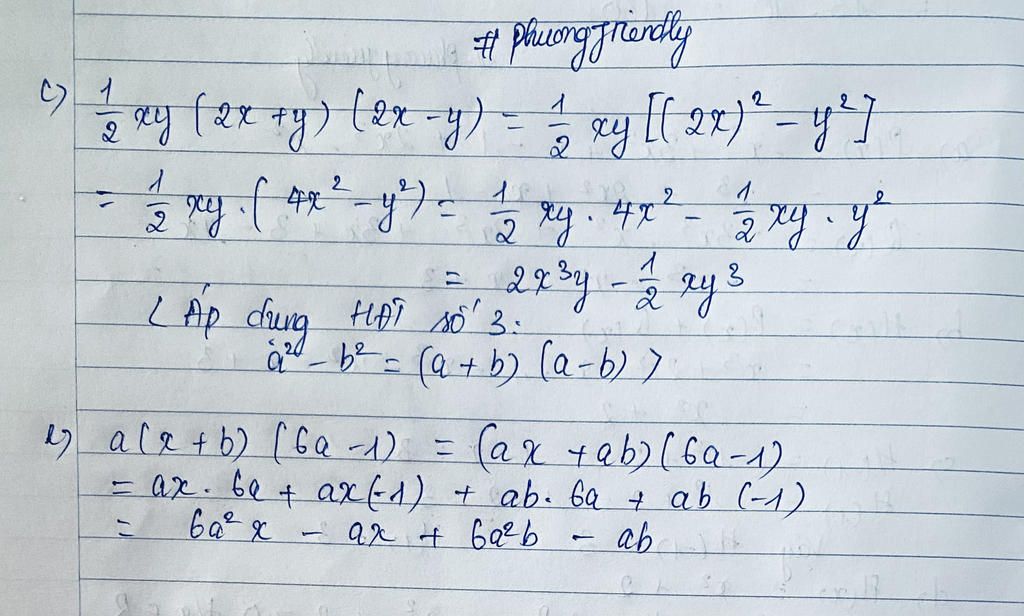 # phuongfriendly
c) 1/2 xy (2x + y) (2x - y) = 1/2 xy [(2x)² - y²]
= 1/2 xy . (4x² - y²) = 1/2 xy . 4x² - 1/2 xy . y²
= 2x³y - 1/2 xy³
< Áp dụng HĐT số 3:
a² - b² = (a + b) (a - b) >
a(x + b) (6a - 1) = (ax + ab) (6a - 1)
= ax . 6a + ax (-1) + ab . 6a + ab (-1)
= 6a²x - ax + 6a²b - ab